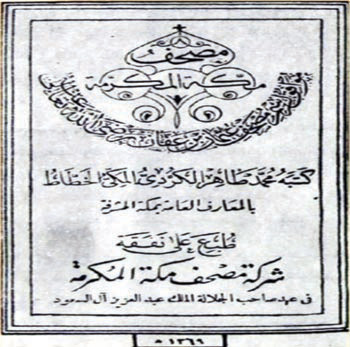 مصحف
مكة المكرمة
كتبه محمد طاهر الكردي المكي الخطاط
بالمعارف العامة بمكة المشرفة
طبع على نفقة
شركة مصحف مكة المكرمة
في عهد صاحب الجلالة الملك عبد العزيز آل السعود
١٣٦٩ ه